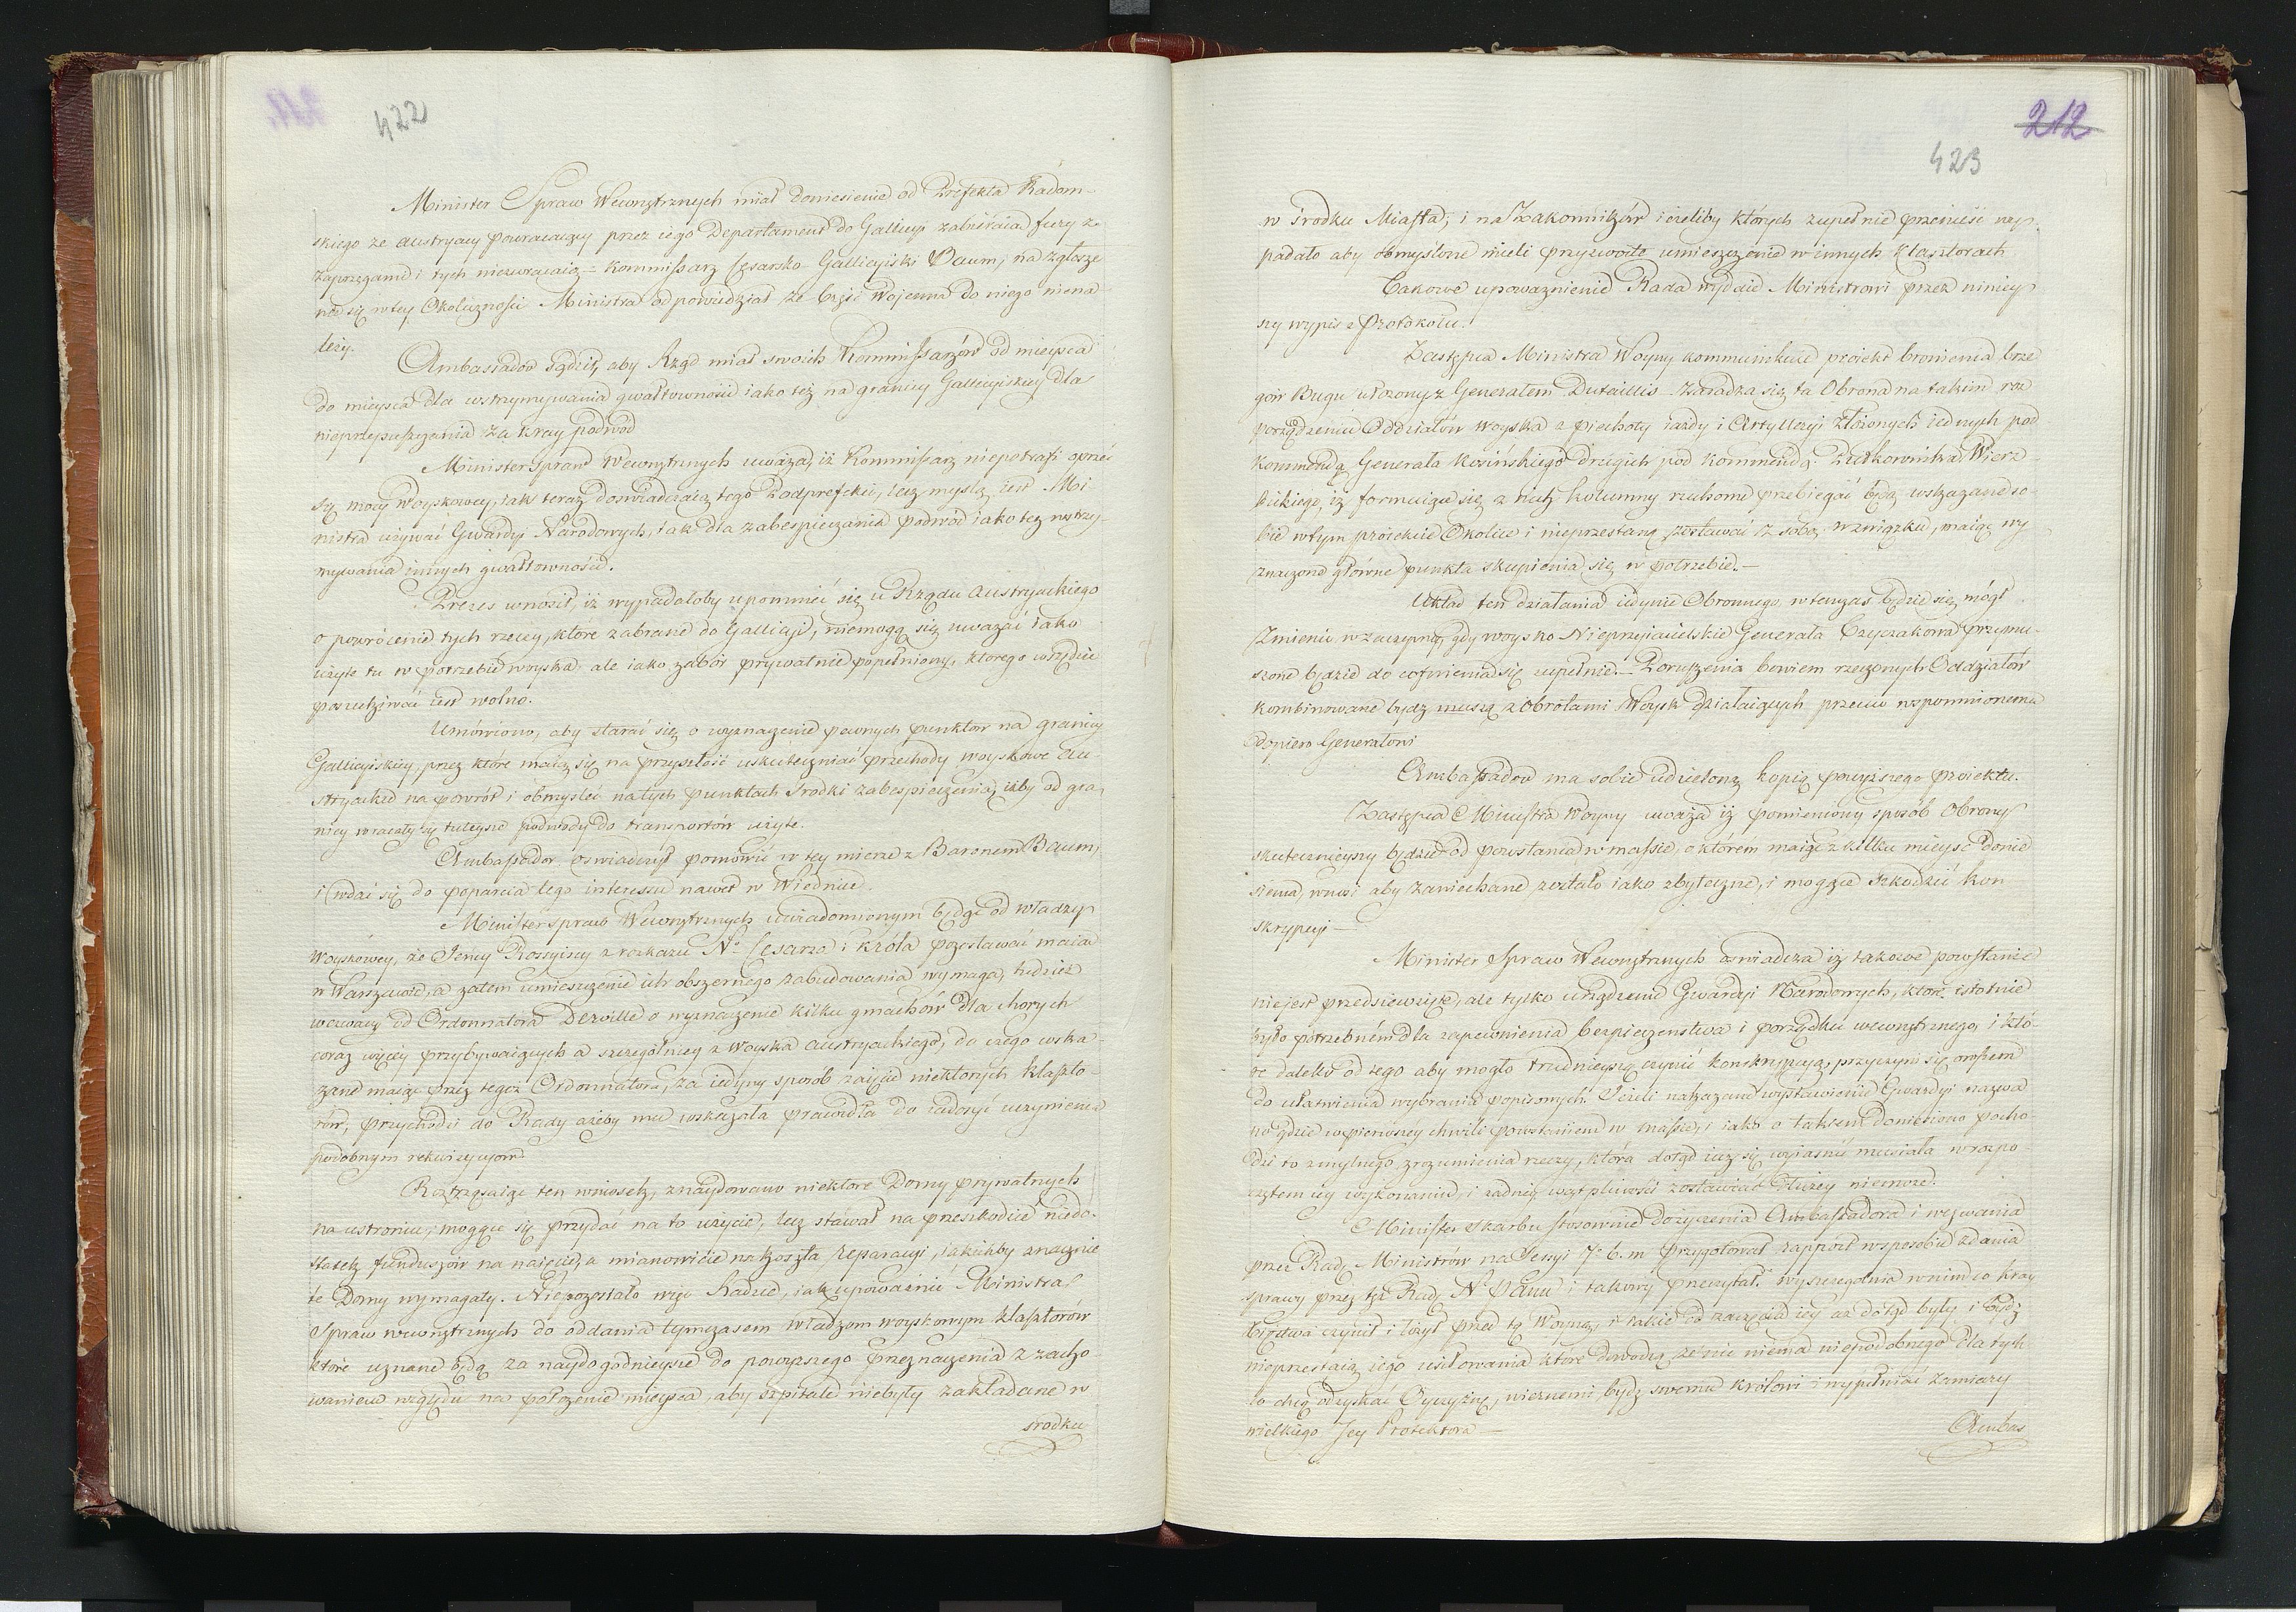 422
Minister Spraw Wewnętrznych miał doniesienie od Prefekta Radom-
skiego że Austryacy powracaiący przez iego Departament do Gallicyi zabieraią fury z
zaprzęgami i tych niezwracaią – Kommissarz Cesarsko Gallicyiski Baum, na zgłosze-
nie się w tey Okoliczności Ministra odpowiedział że Część Woienna do niego niena-
leży.
Ambassador sądził, aby Rząd miał swoich Kommissarzów od mieysca
do mieysca dla wstrzymywania gwałtowności iako też na granicy Gallicyiskiey dla
nieprzepuszczania za kray podwód
Minister Spraw Wewnętrznych uważa, iż Kommissarz niepotrafi oprzeć
się mocy Woyskowey, iak teraz doświadczaią tego Podprefekci, lecz myślą iest Mi-
nistra używać Gwardyi Narodowych, iak dla zabespieczania podwód iako też wstrzy-
mywania innych gwałtowności.
Prezes wnosił, iż wypadałoby upomnieć się u Rządu Austryackiego
o powrócenie tych rzeczy, które zabrane do Gallicyi, niemogą się uważać iako
użyte tu w potrzebie woyska, ale iako zabór prywatnie popełniony, którego wszędzie
poszukiwać iest wolno.
Umówiono, aby starać się o wyznaczenie pewnych punktów na granicy
Gallicyiskiey, przez które maią się na przyszłość uskuteczniać przechody woyskowe Au-
stryackie na powrót i obmyśleć na tych punktach środki zabespieczenia, iżby od gra-
nicy wracały się tuteysze podwody do transportów użyte.
Ambassador oświadczył pomówić w tey mierze z Baronem Baum,
i udać się do poparcia tego interessu nawet w Wiedniu.
Minister Spraw Wewnętrznych uwiadomionym będąc od władzy
Woyskowey, że Jeńcy Rossyiscy z rozkazu N° Cesarza i Króla pozostawać maią
w Warszawie, a zatem umieszczenie ich obszernego zabudowania wymaga, tudzież
wezwany od Ordonnatora Dezville o wyznaczenie kilku gmachów dla chorych
coraz więcey przybywaiących a szczególniey z Woyska Austryackiego, do czego wska-
zane maiąc przez tegoż Ordonnatora, za iedyny sposób zaięcie niektórych klaszto-
rów, przychodzi do Rady ażeby mu wskazała prawidła do zadosyć uczynienia
podobnym rekwizycyom.
Roztrząsaiąc ten wniosek, znaydowano niektóre Domy prywatnych
na ustroniu, mogące się przydać na to użycie, lecz stawał na przeszkodzie niedo-
statek funduszów na naięcie, a mianowicie na koszta reparacyi, iakichby znacznie
te Domy wymagały. Niepozostało więc Radzie, iak upoważnić Ministra
Spraw wewnętrznych do oddania tymczasem władzom woyskowym klasztorów
które uznane będą za naydogodnieysze do powyższego przeznaczenia z zacho-
waniem względu na położenie mieysca, aby szpitale niebyły zakładane w
środku
212
423
w środku Miasta; i na Zakonników iżeliby których zupełnie przenieść wy-
padało aby obmyślone mieli przyzwoite umieszczenie w innych Klasztorach
Takowe upoważnienie Rada wydaie Ministrowi przez niniey-
szy wypis z Protokołu.
Zastępca Ministra Woyny kommunikuie proiekt bronienia brze-
gów Bugu ułożony z Generałem Dutaillis. Zasadza się ta Obrona na takim roz-
porządzeniu Oddziałów Woyska z piechoty iazdy i Artylleryi złożonych iednych pod
kommendą Generała Kosińskiego drugich pod kommendą Pułkownika Wierz-
bickiego, iż formuiące się z nich kolumny ruchome przebiegać będą wskazane so-
bie w tym proiekcie Okolice i nieprzestaną zostawać z sobą w związku, maiąc wy-
znaczone główne punkta skupienia się w potrzebie. –
Układ ten działania iedynie Obronnego, wtenczas będzie się mógł
zmienić w zaczepny, gdy woysko Nieprzyiacielskie Generała Czyczakowa przymu-
szone będzie do cofnienia się zupełnie. – Poruszenia bowiem rzeczonych Oddziałów
kombinowane bydź muszą z Obrotami Woysk działaiących przeciw wspomnionemu
dopiero Generałowi
Ambassador ma sobie udzieloną kopią powyższego proiektu.
Zastępca Ministra Woyny uważa iż pomieniony sposób Obrony
skutecznieyszy będzie od powstania w massie, o którem maiąc z kilku mieysc donie-
sienia, wnosi aby zaniechane zostało iako zbyteczne, i mogące szkodzić kon-
skrypcyi –
Minister Spraw Wewnętrznych oświadcza iż takowe powstanie
nie jest przedsięwzięte, ale tylko urządzenie Gwardyi Narodowych, które istotnie
było potrzebném dla zapewnienia bezpieczeństwa i porządku wewnętrznego, i któ-
re daleko od tego aby mogło trudnieyszą czynić konskrypcyą, przyczyni się owszem
do ułatwienia wybrania popisowych. Jeżeli nakazane wystawienie Gwardyi nazwa-
no gdzie w pierwszey chwili powstaniem w massie, i iako o takiem doniesiono pocho-
dzi to z mylnego zrozumienia rzeczy, która dotąd iuż się wyiaśnić musiała w rozpo-
czętem iey wykonaniu, i żadney wątpliwości zostawiać dłużey niemoże.
Minister Skarbu stósownie do życzenia Ambassadora i wezwania
przez Radę Ministrów na Sessyi 7° b. m. przygotował rapport w sposobie zdania
sprawy przez tęż Radę N° Panu i takowy przeczytał. Wyszczególnia w nim co kray
Xięztwa czynił i łożył przed tą Woyną, i iakie od zaczęcia iey aż dotąd były i bydź
nieprzestaią iego usiłowania które dowodzą że nic niema niepodobnego dla tych
co chcą odzyskać Oyczyznę, wiernemi bydź swemu Królowi i wypełniać zamiary
wielkiego Jey Protektora –
Ambas